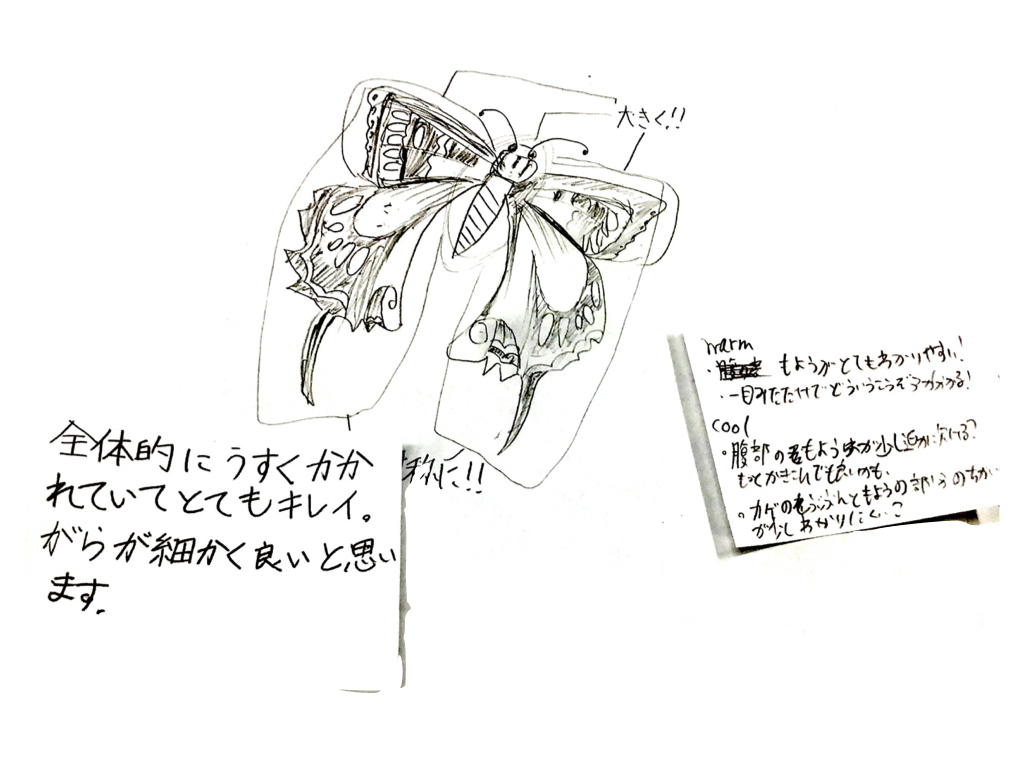 大きく!!
称に!!
全体的にうすくかか
れていてとてもキレイ。
がらが細かく良いと思い
ます.
warm
・もようがとてもわかりやすい!
・一目みただけでどういうこうぞうかわかる!
cool
・腹部のもようが少し迫力に欠ける?
もっとかきこんでも良いかも、
・カゲのぶぶんともようの部分のちがい
が少しわかりにくい?